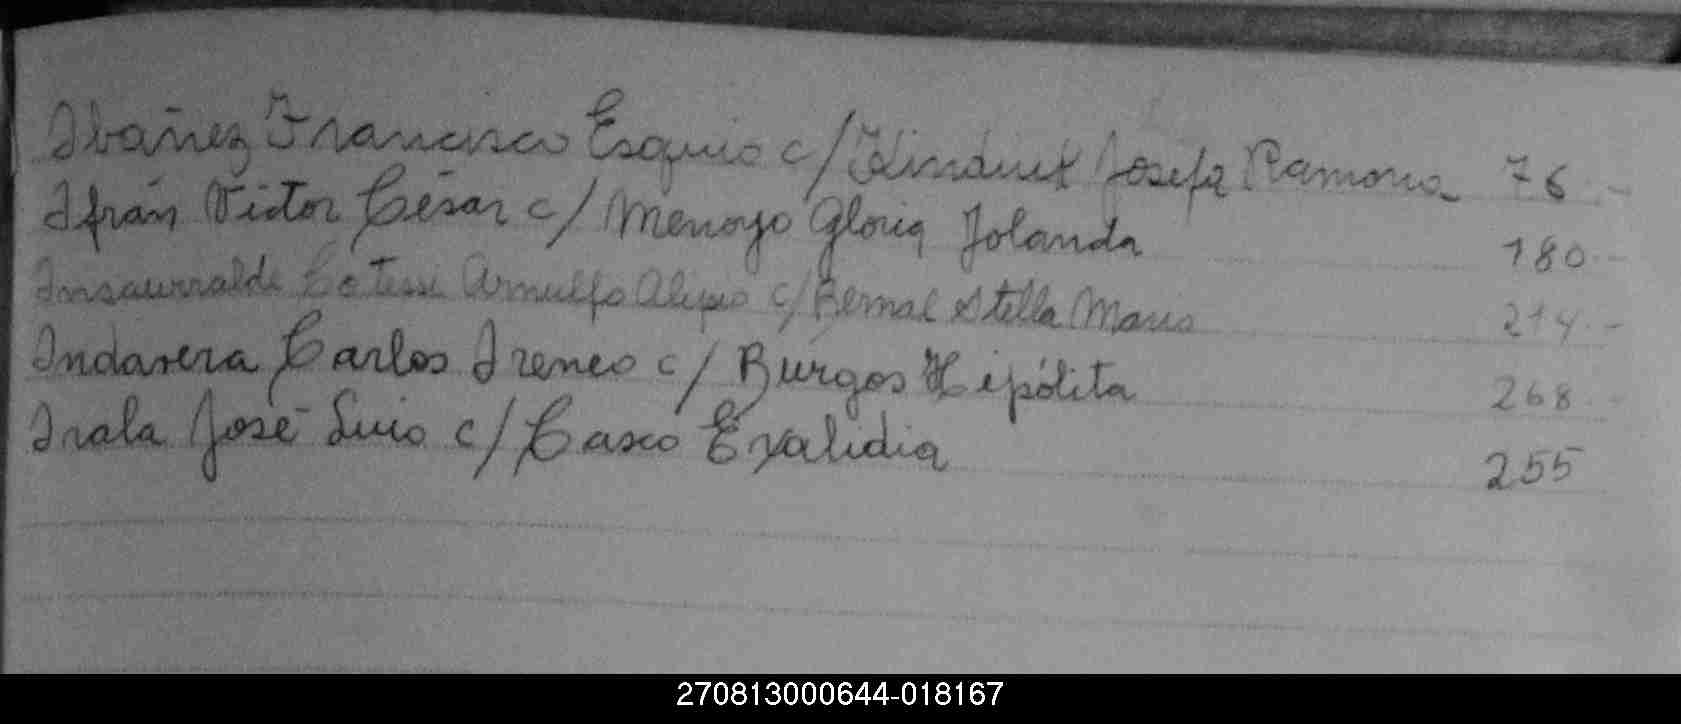 Ibáñez Francisco Esquio c/ Josefa Ramona 76
Ifrán Victor César c/ Menoyo Gloria Yolanda 180
Insaurralde Arnulfo Alipio c/ Bernal Stella Maris 214
Indavera Carlos Ireneo c/ Burgos Hipólita 268
Irala José Luis c/ Casco Exalidia 255
270813000644-018167